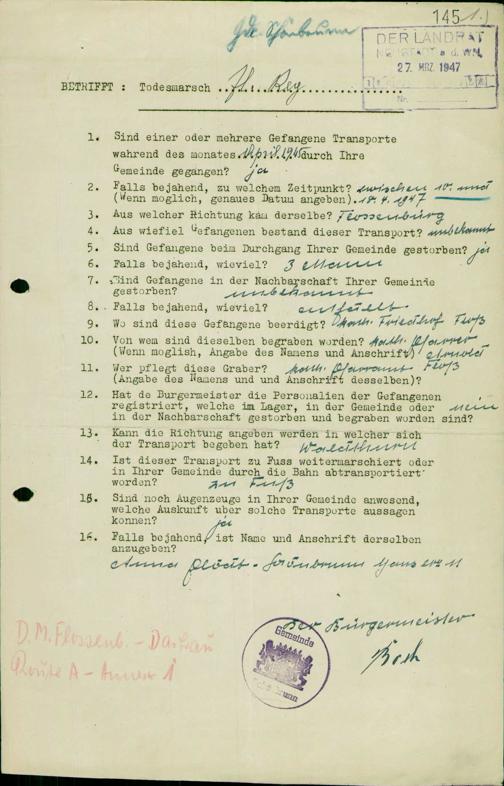 145 1.)
Gde. Schönbrunn
DER LANDRAT
NEUSTADT a. d. WN.
27. MRZ. 1947
Nr.
BETRIFFT : Todesmarsch
1. Sind einer oder mehrere Gefangene Transporte
wahrend des monates April 1945 durch Ihre
Gemeinde gegangen? ja
2. Falls bejahend, zu welchem Zeitpunkt? zwischen 10. und
(Wenn moglich, genaues Datum angeben). 18. 4. 1947
3. Aus welcher Richtung kam derselbe? Flossenbürg
4. Aus wiefiel Gefangenen bestand dieser Transport? unbekannt
5. Sind Gefangene beim Durchgang Ihrer Gemeinde gestorben? ja
6. Falls bejahend, wieviel? 3 Mann
7. Sind Gefangene in der Nachbarschaft Ihrer Gemeinde
gestorben? unbekannt
8. Falls bejahend, wieviel? entfällt
9. Wo sind diese Gefangene beerdigt? kath. Friedhof Floß
10. Von wem sind dieselben begraben worden? kath. Pfarrer
(Wenn moglish, Angabe des Namens und Anschrift)
11. Wer pflegt diese Graber? kath. Pfarramt Floß
(Angabe des Namens und und Anschrift desselben)?
12. Hat de Burgermeister die Personalien der Gefangenen
registriert, welche im Lager, in der Gemeinde oder nein
in der Nachbarschaft gestorben und begraben worden sind?
13. Kann die Richtung angeben werden in welcher sich
der Transport begeben hat? Waldthurn
14. Ist dieser Transport zu Fuss weitermarschiert oder
in Ihrer Gemeinde durch die Bahn abtransportiert
worden? zu Fuß
15. Sind noch Augenzeuge in Ihrer Gemeinde anwesend,
welche Auskunft uber solche Transporte aussagen
konnen? ja
16. Falls bejahend, ist Name und Anschrift derselben
anzugeben?
Anna - Schönbrunn
Der Bürgermeister
Gemeinde
Schönbrunn
D. M. Flossenb. - Dachau
Route A - Annex 1